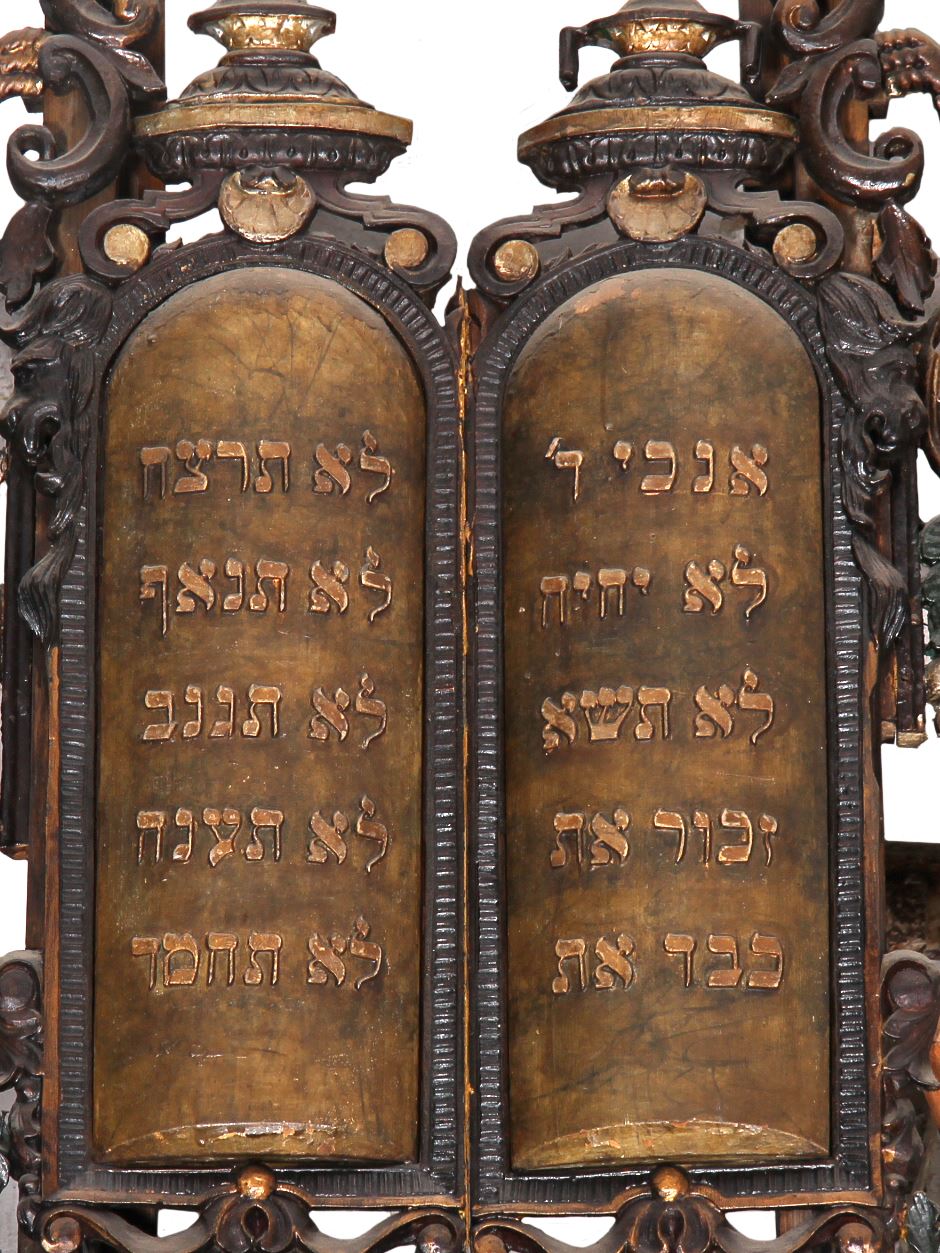 אנכי ד'
לא יהיה
לא תשא
זכור את
כבד את
לא תרצח
לא תנאף
לא תגנב
לא תענה
לא תחמד